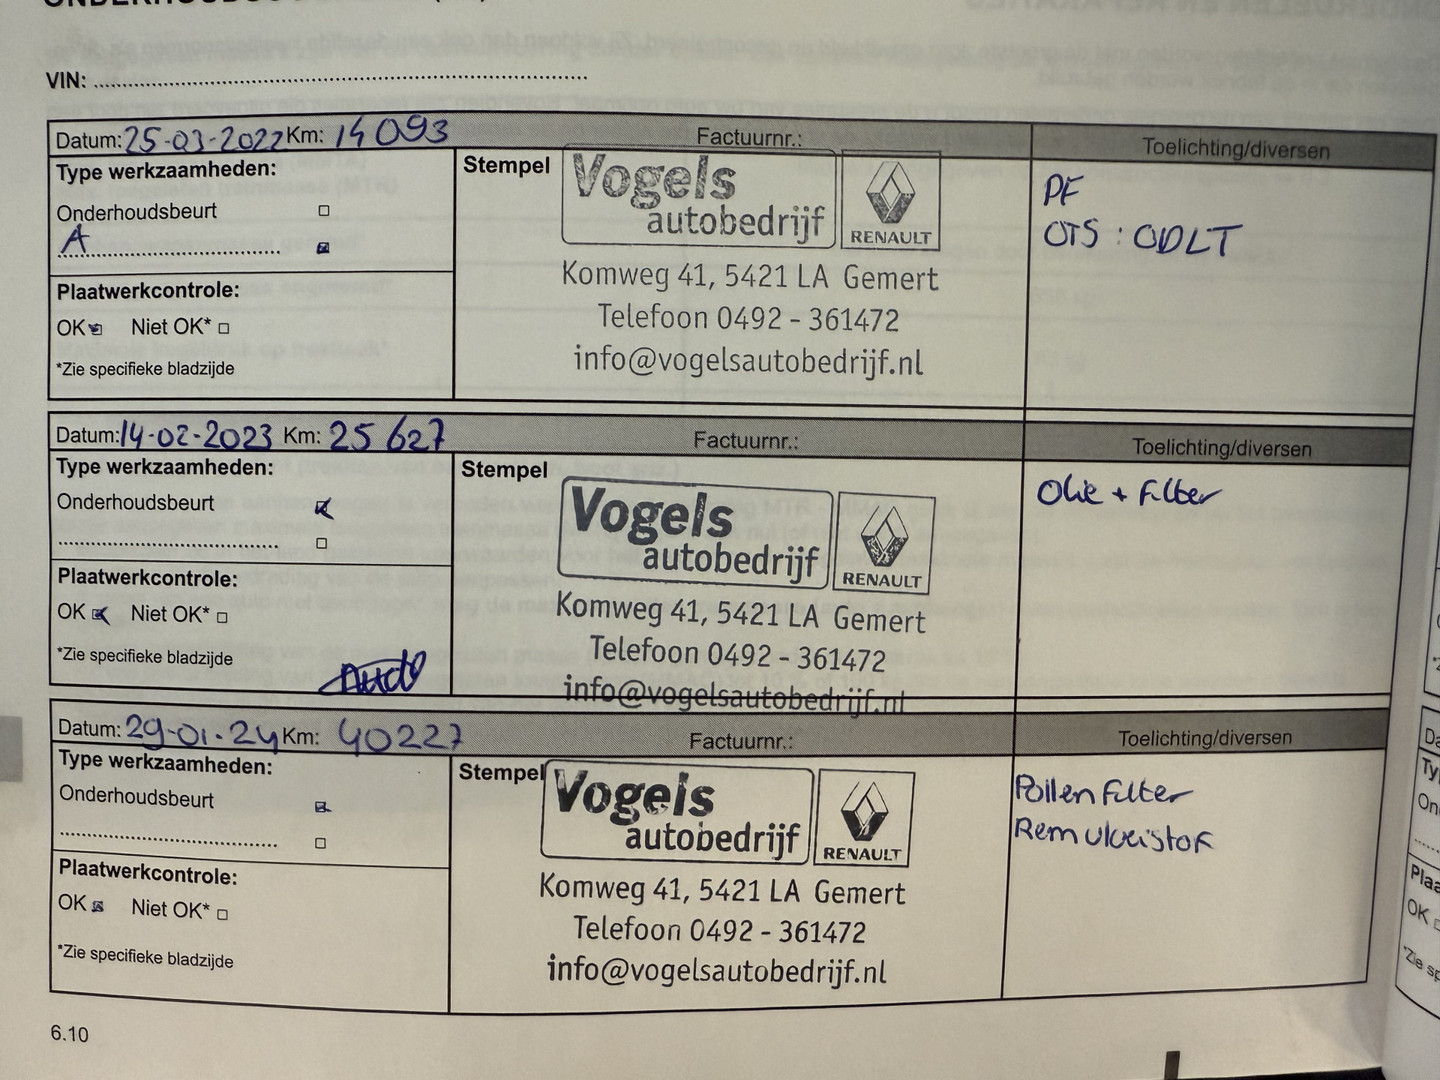 VIN:
Datum: 25-03-2022 Km: 14093 Factuurnr.: Toelichting/diversen
Type werkzaamheden:
Onderhoudsbeurt
A
Plaatwerkcontrole:
OK Niet OK*
*Zie specifieke bladzijde
Stempel
Vogels
autobedrijf
RENAULT
Komweg 41, 5421 LA Gemert
Telefoon 0492 - 361472
info@vogelsautobedrijf.nl
PF
OTS : ODLT
Datum: 14-02-2023 Km: 25 627 Factuurnr.: Toelichting/diversen
Type werkzaamheden:
Onderhoudsbeurt
Plaatwerkcontrole:
OK Niet OK*
*Zie specifieke bladzijde
Stempel
Vogels
autobedrijf
RENAULT
Komweg 41, 5421 LA Gemert
Telefoon 0492 - 361472
info@vogelsautobedrijf.nl
Olie + Filter
Datum: 29-01-24 Km: 40227 Factuurnr.: Toelichting/diversen
Type werkzaamheden:
Onderhoudsbeurt
Plaatwerkcontrole:
OK Niet OK*
*Zie specifieke bladzijde
Stempel
Vogels
autobedrijf
RENAULT
Komweg 41, 5421 LA Gemert
Telefoon 0492 - 361472
info@vogelsautobedrijf.nl
Pollen Filter
Remvloeistof
6.10